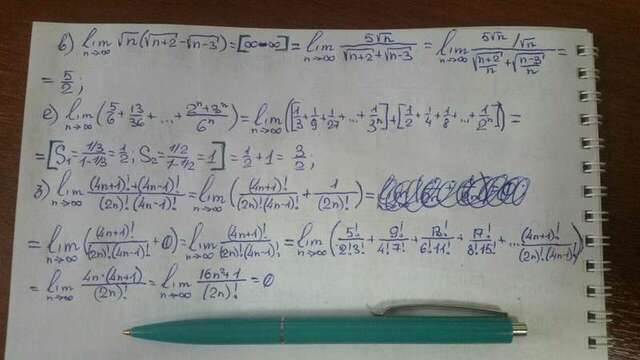 в) lim n→∞ √n(√n+2 - √n-3) = [∞-∞] = lim n→∞ 5√n / (√n+2 + √n-3) = lim n→∞ (5√n/√n) / (√(n+2)/n + √(n-3)/n) =
= 5/2;
е) lim n→∞ (5/6 + 13/36 + ... + (2^n+3^n)/6^n) = lim n→∞ ([1/3 + 1/9 + 1/27 + ... + 1/3^n] + [1/2 + 1/4 + 1/8 + ... + 1/2^n]) =
= [S₁ = (1/3)/(1-1/3) = 1/2; S₂ = (1/2)/(1-1/2) = 1] = 1/2 + 1 = 3/2;
з) lim n→∞ ((4n+1)! + (4n-1)!) / ((2n)! (4n-1)!) = lim n→∞ ((4n+1)! / ((2n)! (4n-1)!) + 1/(2n)!) =
= lim n→∞ ((4n+1)! / ((2n)! (4n-1)!) + 0) = lim n→∞ (4n+1)! / ((2n)! (4n-1)!) = lim n→∞ (5!/(2!3!) + 9!/(4!7!) + 13!/(6!11!) + 17!/(8!15!) + ... (4n+1)!/((2n)!(4n-1)!))
= lim n→∞ 4n·(4n+1)/(2n)! = lim n→∞ (16n²+1)/(2n)! = 0